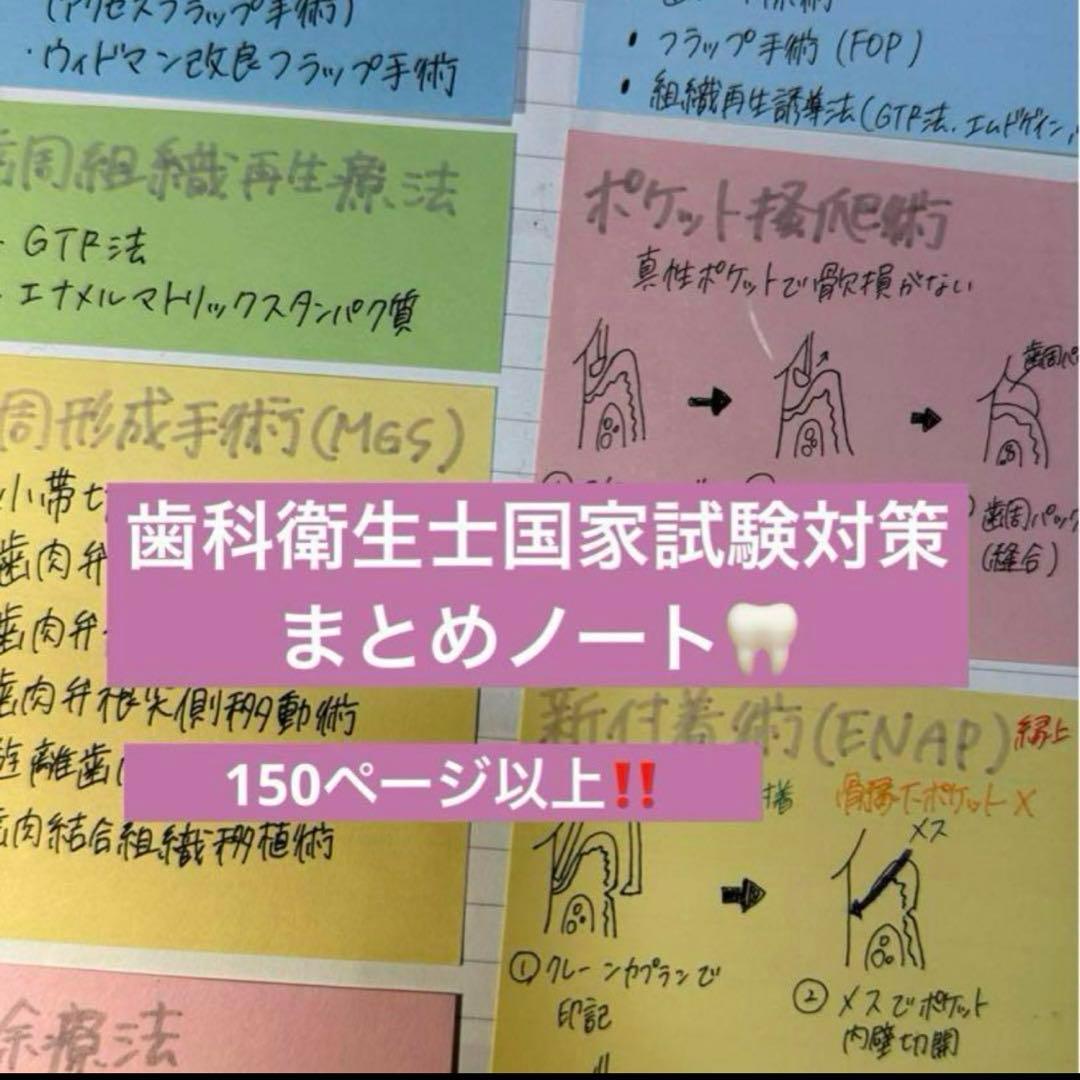 (アクセスフラップ手術)
・ウィドマン改良フラップ手術
・フラップ手術(FOP)
・組織再生誘導法(GTR法、エムドゲイン、
歯周組織再生療法
・GTR法
・エナメルマトリックスタンパク質
ポケット掻爬術
真性ポケットで骨欠損がない
歯周パ
歯周パック
(縫合)
周形成手術(MGS)
小帯切
歯肉弁
歯肉弁
歯肉弁根尖側移動術
遊離歯
歯肉結合組織移植術
歯科衛生士国家試験対策
まとめノート🦷
150ページ以上‼️
新付着術(ENAP)
縁上
骨縁下ポケット×
メス
①クレーンカプランで
印記
②メスでポケット
内壁切開
除療法